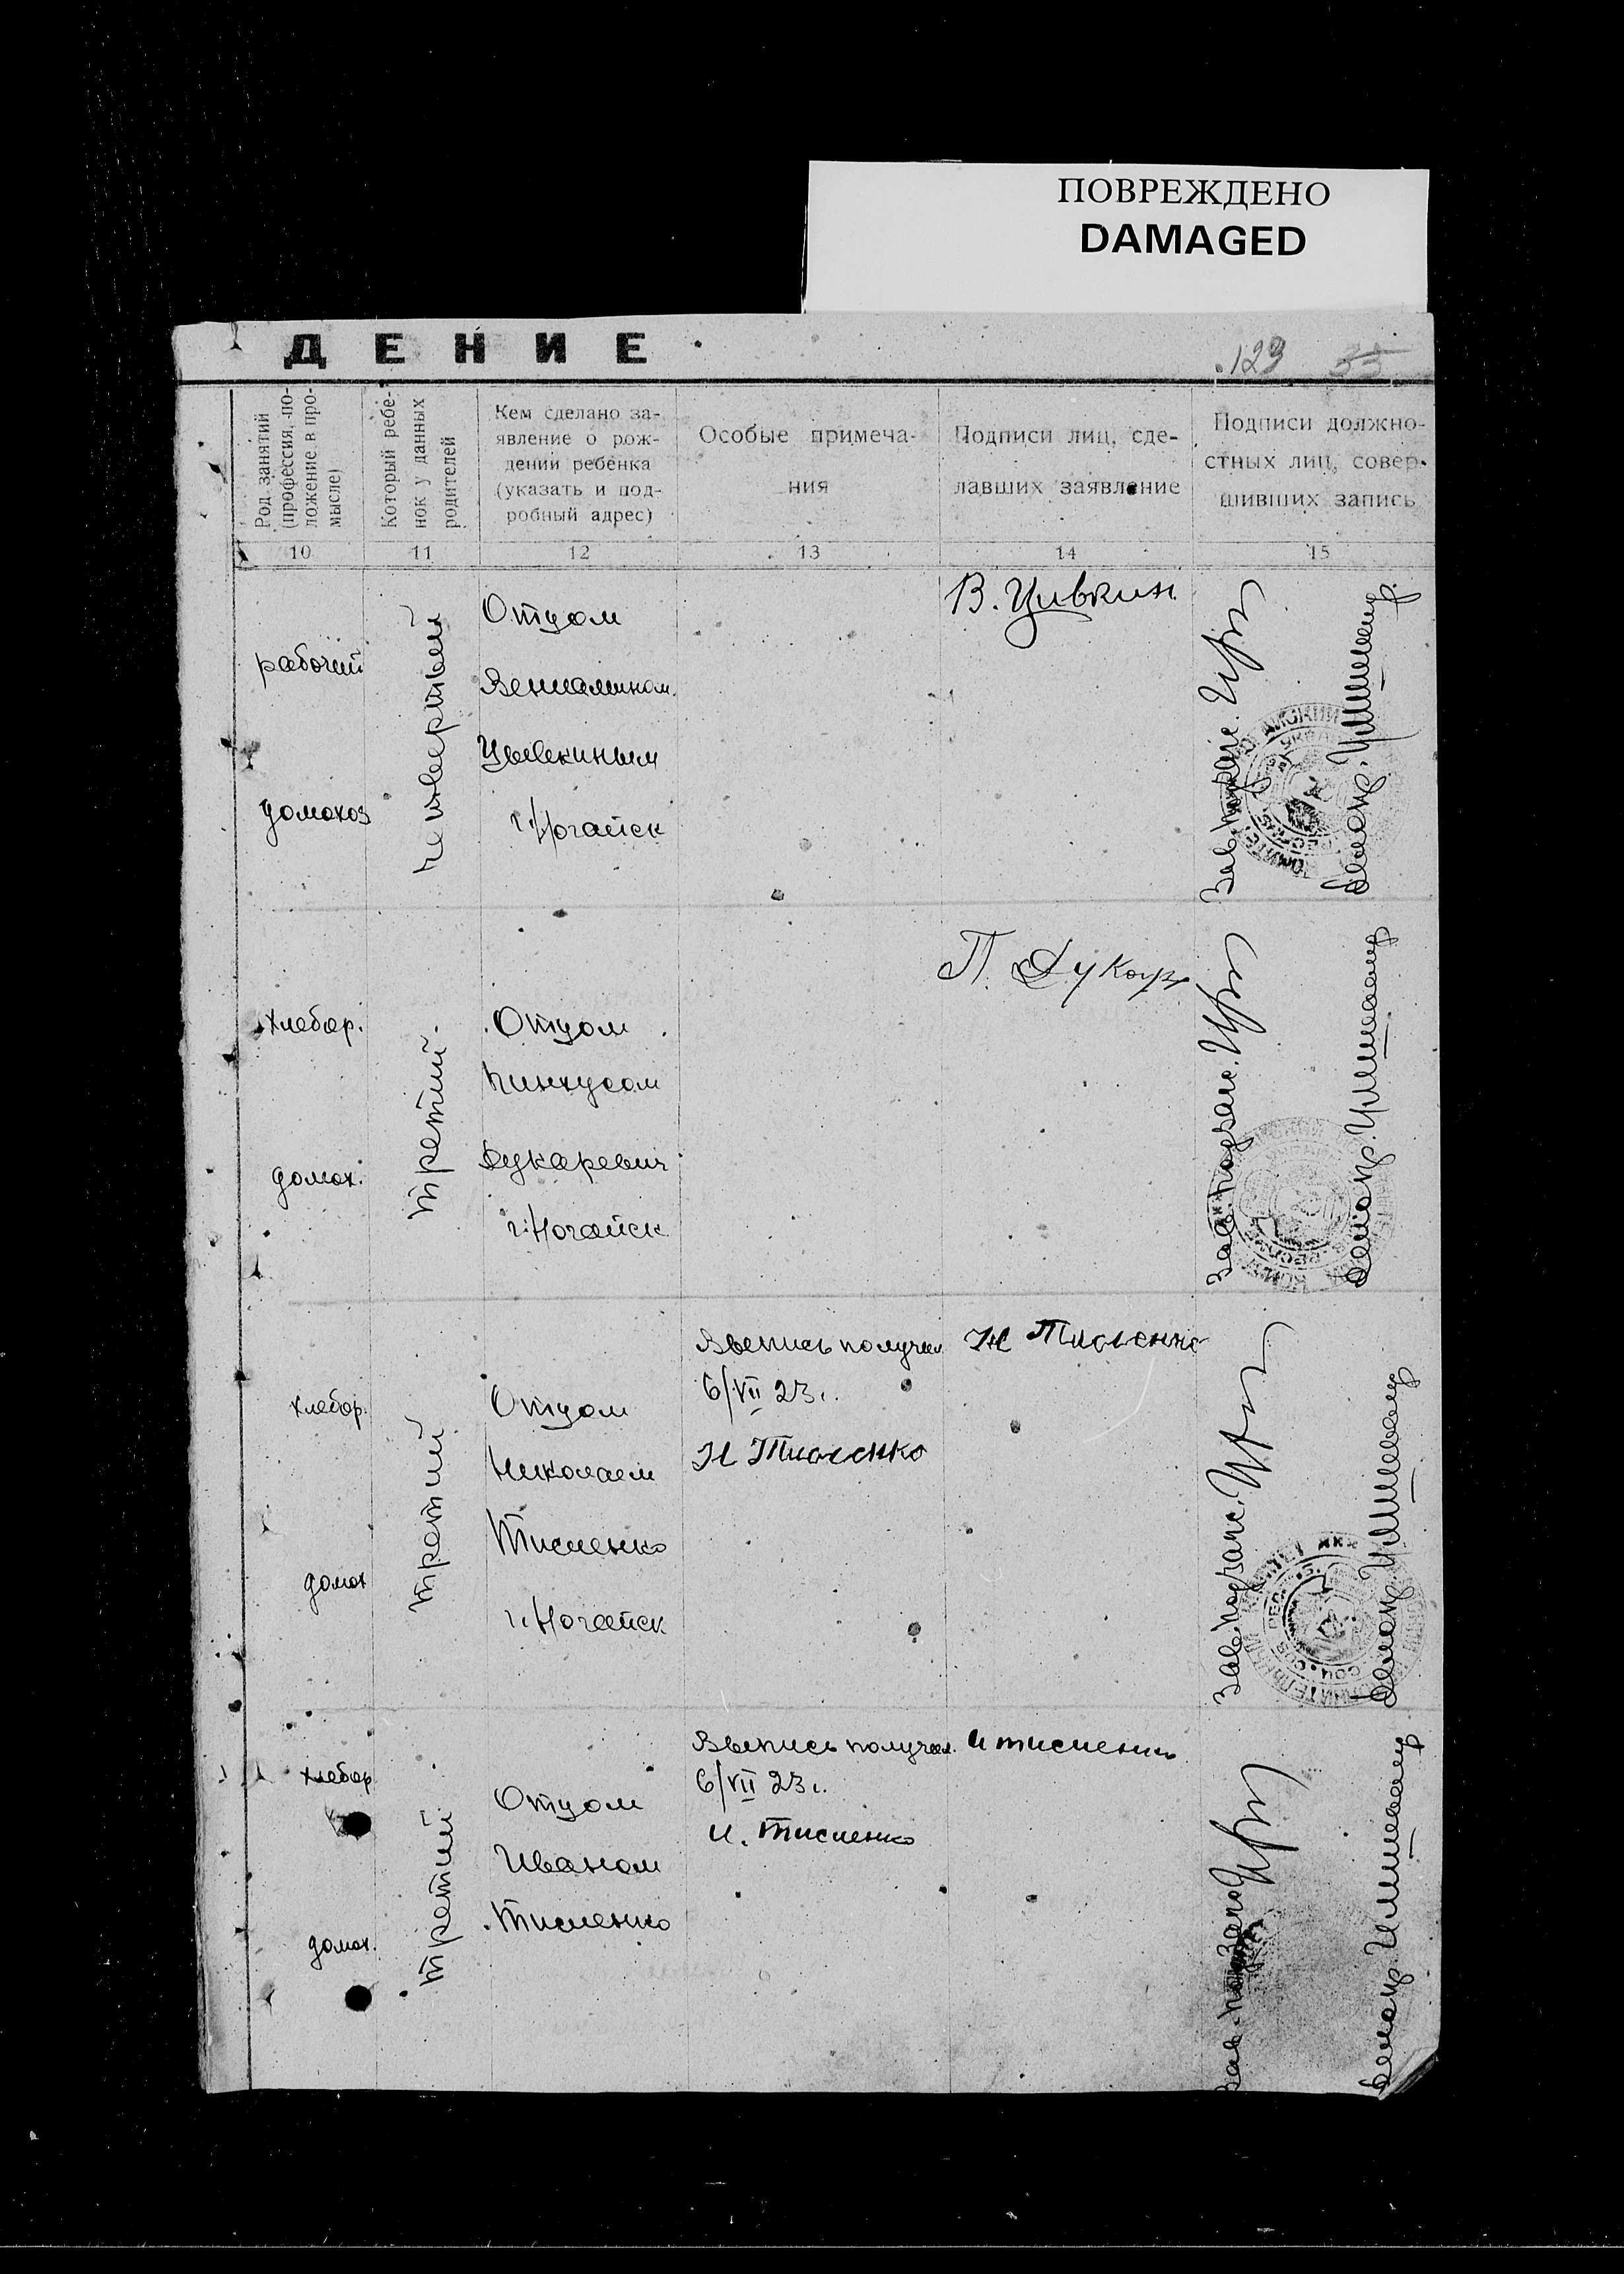 ПОВРЕЖДЕНО
DAMAGED
ДЕНИЕ
123 35
Род занятий (профессия, положение в промысле)
Который ребенок у данных родителей
Кем сделано за-
явление о рож-
дении ребенка
(указать и под-
робный адрес)
Особые примеча-
ния
Подписи лиц, сде-
лавших заявление
Подписи должно-
стных лиц, совер-
шивших запись
10 11 12 13 14 15
рабочий
домохоз
четвертый
Отцом
Вениамином
Цывкиным
г. Ногайск
В. Цивкин
Зав. подзагс.
Делопр.
хлебор.
домох.
третий.
Отцом
Пинхусом
Дукаревич
г. Ногайск
П. Дукар
Зав. подзагс.
Делопр.
хлебор.
домох
третий
Отцом
Николаем
Тисленко
г. Ногайск
Выпись получил
6/VII 23г.
Н Тисленко
Н Тисленко
Зав. подзагс.
Делопр.
хлебор
домох.
третий
Отцом
Иваном
Тисленко
Выпись получил.
6/VII 23г.
И. Тисленко
И Тисленко
Зав. подзагс
Делопр.